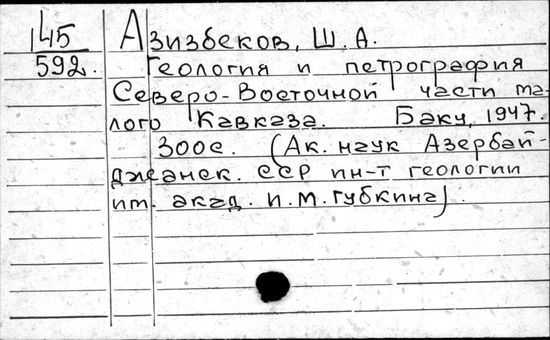 145 Азизбеков, Ш. А.
592. Геология и петрография
Северо-Восточной части ма-
лого Кавказа. Баку, 1947.
300с. (Ак. наук Азербай-
джанск. ССР ин-т геологии
им. акад. И.М.Губкина).